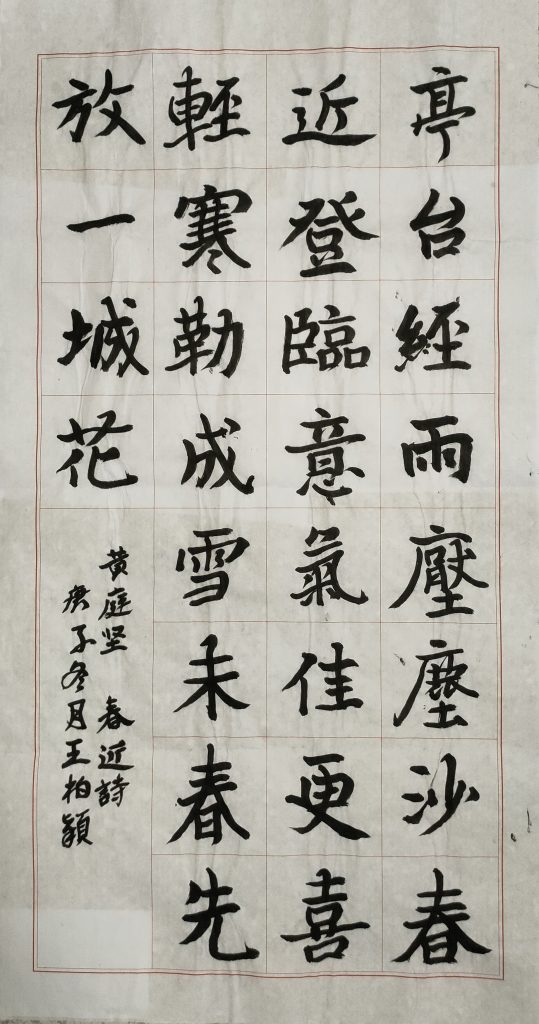 亭台經雨壓塵沙春
近登臨意氣佳更喜
輕寒勒成雪未春先
放一城花
黄庭坚 春近詩
庚子冬月王柏穎